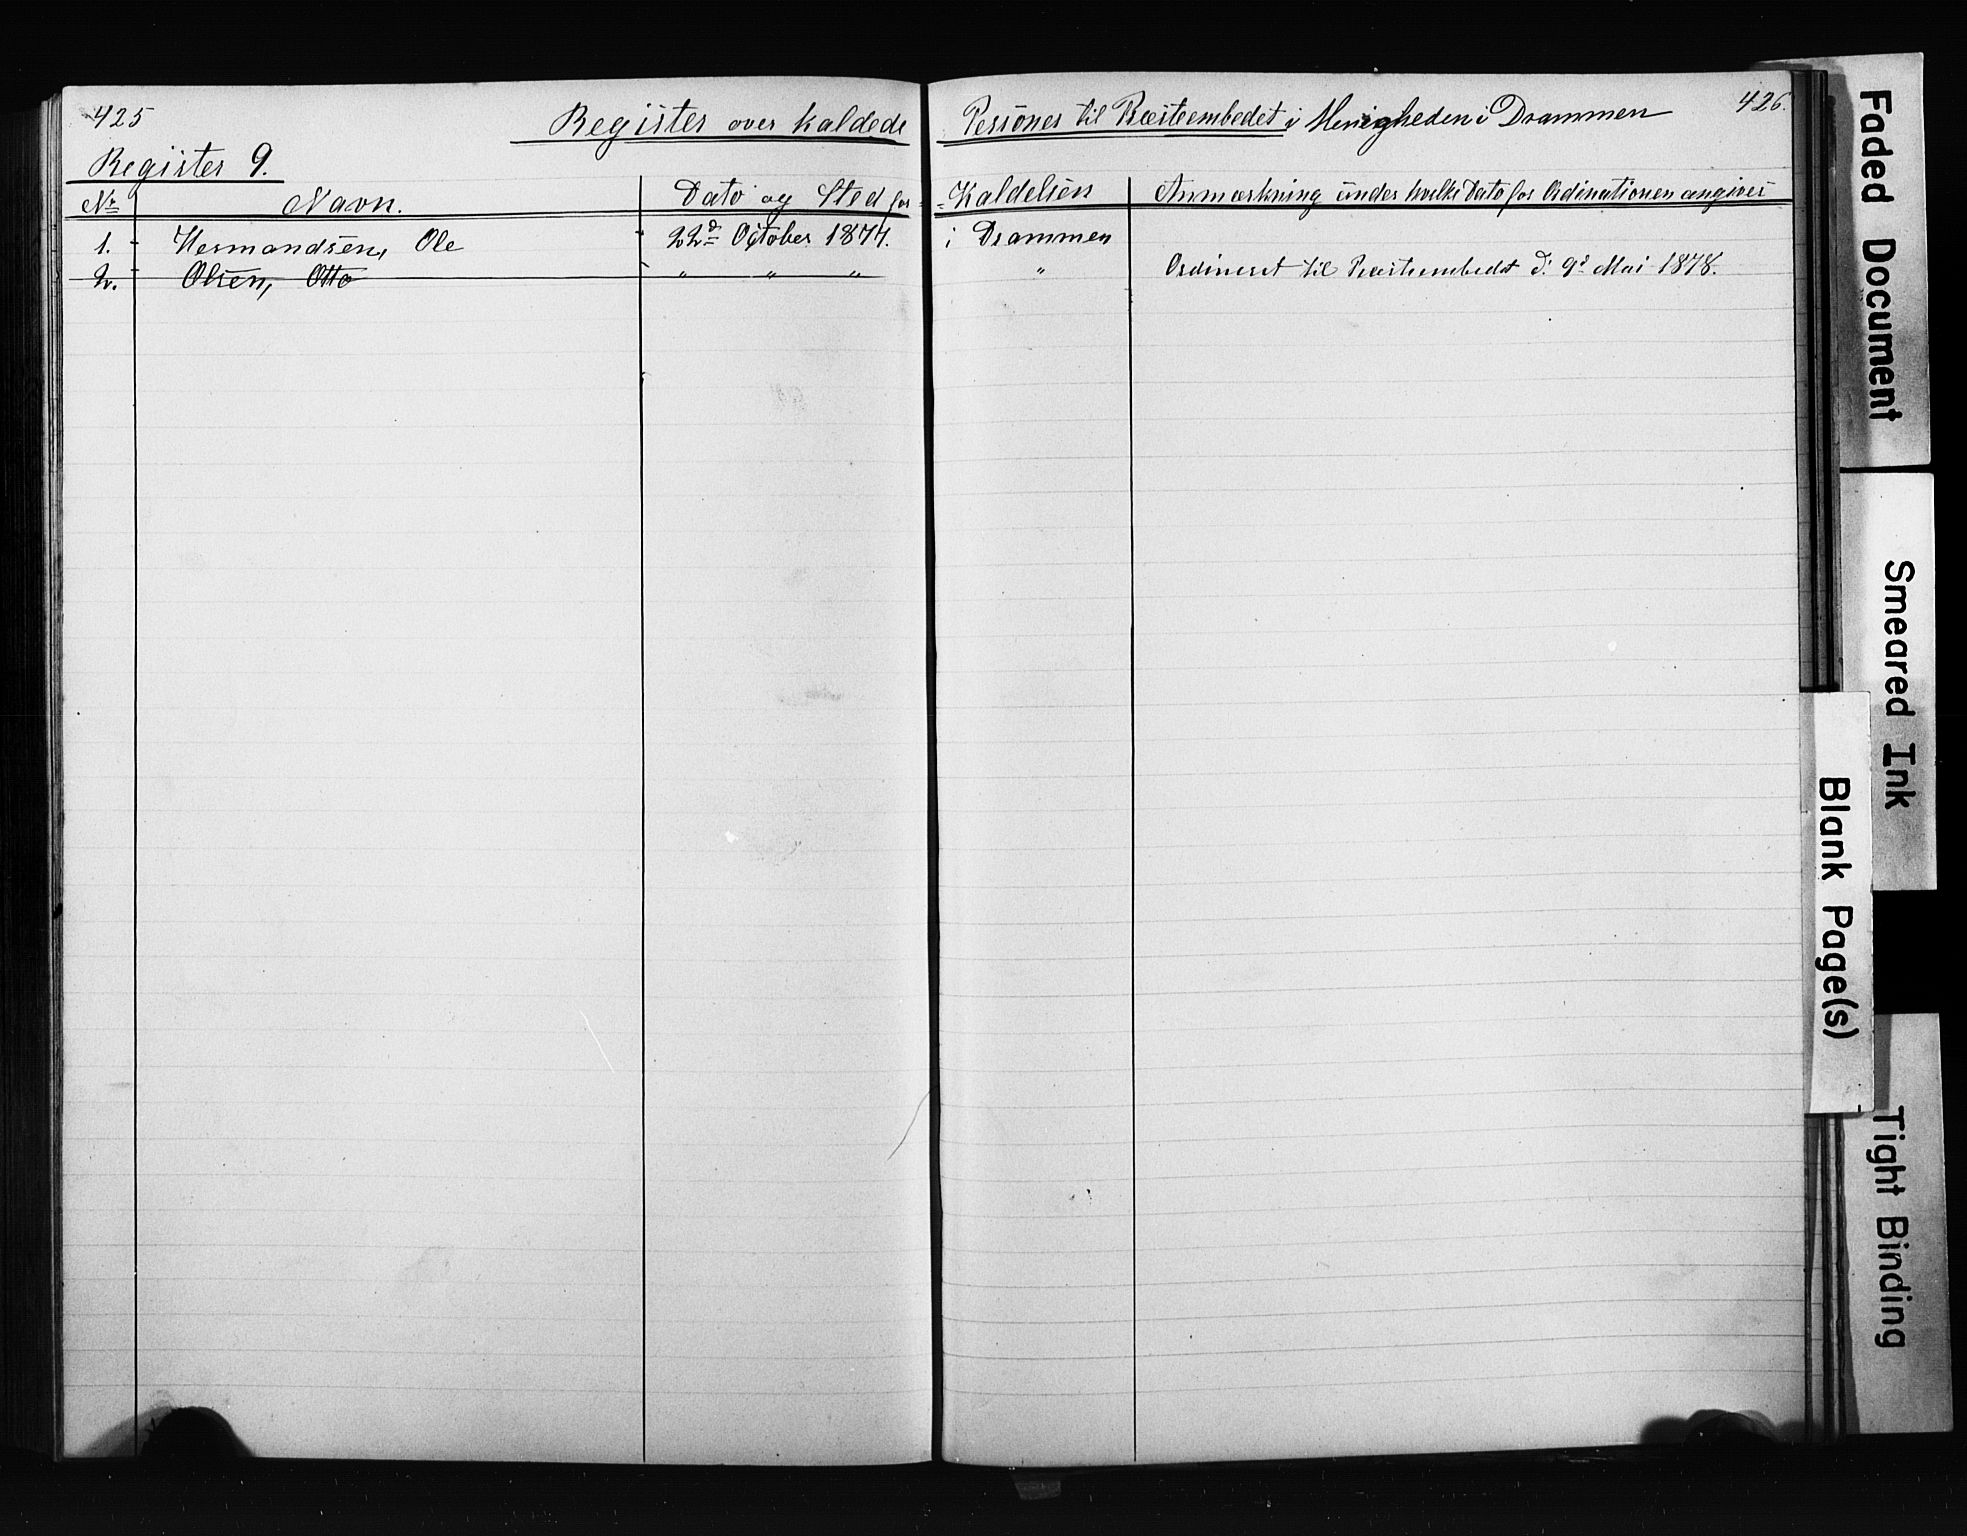 425
426.
Register over kaldede Personer til Præsteembedet i Menigheden i Drammen
Register 9.
No Navn. Dato og Sted for Kaldelsen Anmærkning under hvilke Dato for Ordinationen angives
1. Hermandsen, Ole 22d October 1877. i Drammen
2. Olsen, Otto " " " " Ordineret til Præsteembedet d. 9d Mai 1878.
Faded Document
Smeared Ink
Blank Page(s)
Tight Binding